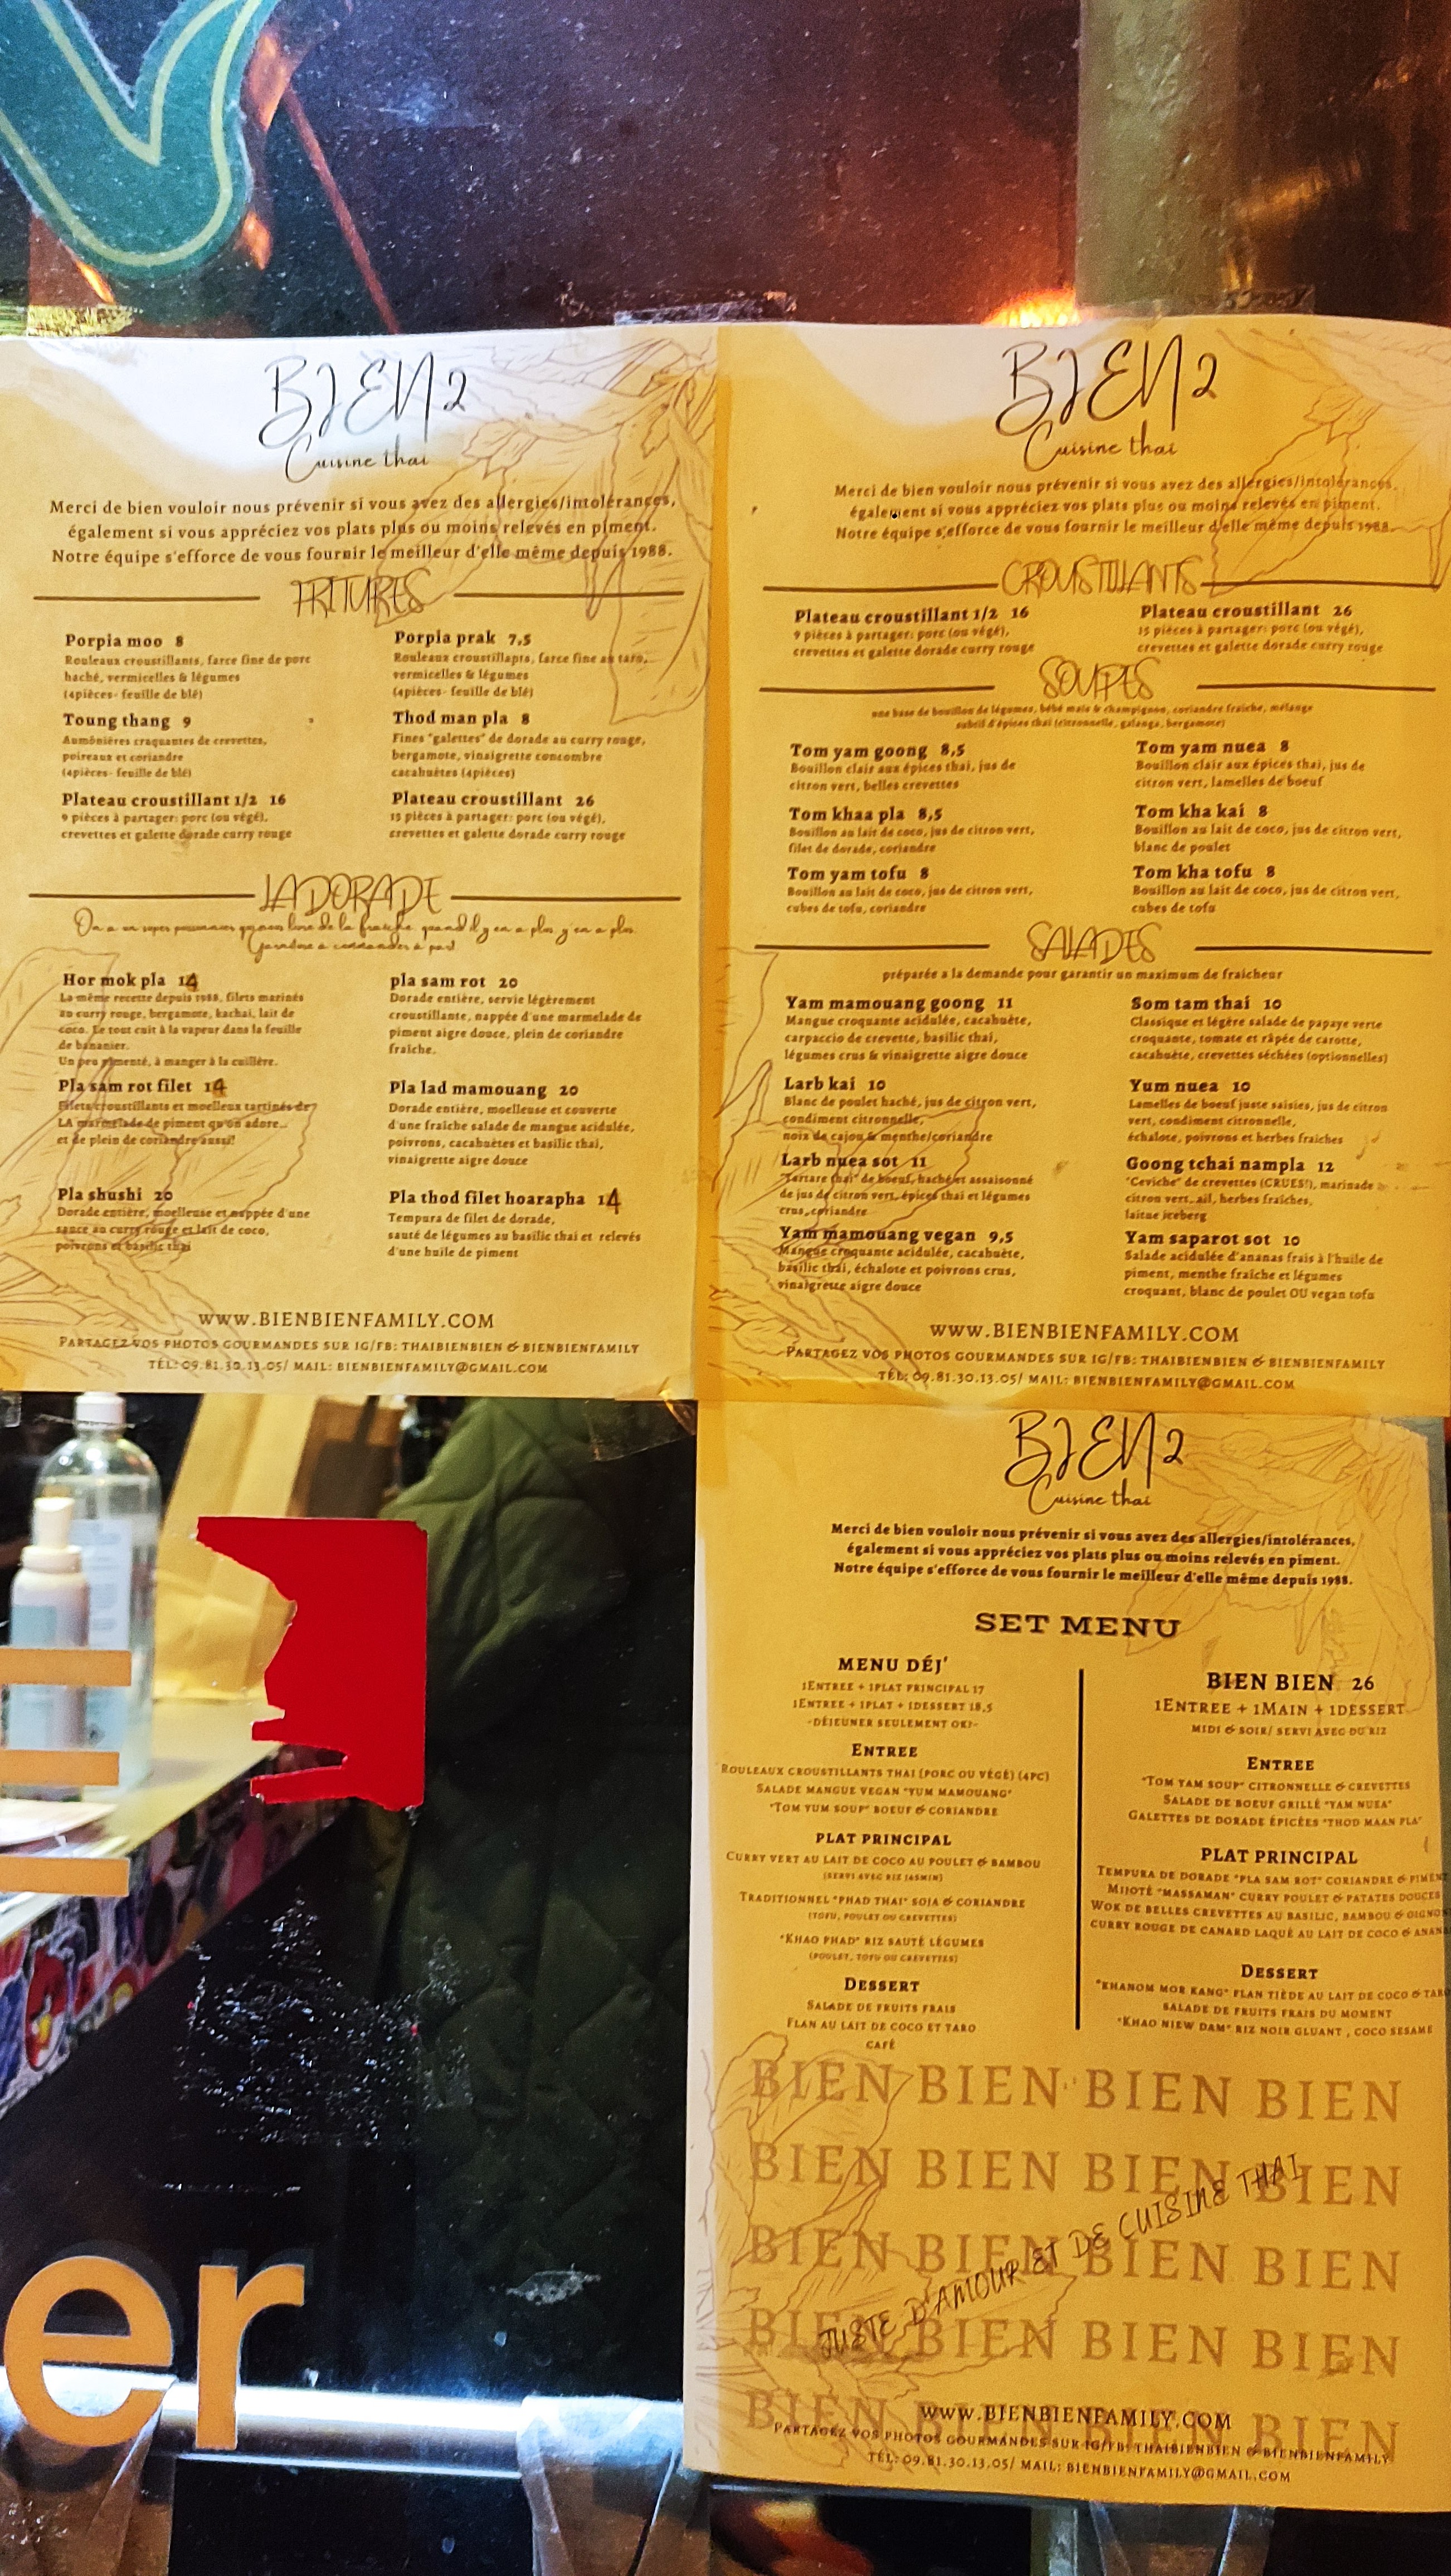 BIEN 2
Cuisine thai
Merci de bien vouloir nous prévenir si vous avez des allergies/intolérances,
également si vous appréciez vos plats plus ou moins relevés en piment.
Notre équipe s'efforce de vous fournir le meilleur d'elle même depuis 1988.
FRITURES
Porpia moo 8
Rouleaux croustillants, farce fine de porc
haché, vermicelles & légumes
(4pièces- feuille de blé)
Toung thang 9
Aumônières craquantes de crevettes,
poireaux et coriandre
(4pièces- feuille de blé)
Plateau croustillant 1/2 16
9 pièces à partager: porc (ou végé),
crevettes et galette dorade curry rouge
Porpia prak 7,5
Rouleaux croustillants, farce fine au taro,
vermicelles & légumes
(4pièces- feuille de blé)
Thod man pla 8
Fines "galettes" de dorade au curry rouge,
bergamote, vinaigrette concombre
cacahuètes (4pièces)
Plateau croustillant 26
15 pièces à partager: porc (ou végé),
crevettes et galette dorade curry rouge
LA DORADE
On a un super poissonnier qui nous livre de la fraîche, quand il y en a plus, y en a plus.
Garniture à commander à part!
Hor mok pla 14
La même recette depuis 1988, filets marinés
au curry rouge, bergamote, kachai, lait de
coco. Le tout cuit à la vapeur dans la feuille
de bananier.
Un peu pimenté, à manger à la cuillère.
Pla sam rot filet 14
Filets croustillants et moelleux tartinés de
LA marmelade de piment qu'on adore...
et de plein de coriandre aussi!
Pla shushi 20
Dorade entière, moelleuse et nappée d'une
sauce au curry rouge et lait de coco,
poivrons et basilic thai
pla sam rot 20
Dorade entière, servie légèrement
croustillante, nappée d'une marmelade de
piment aigre douce, plein de coriandre
fraîche.
Pla lad mamouang 20
Dorade entière, moelleuse et couverte
d'une fraîche salade de mangue acidulée,
poivrons, cacahuètes et basilic thai,
vinaigrette aigre douce
Pla thod filet hoarapha 14
Tempura de filet de dorade,
sauté de légumes au basilic thai et relevés
d'une huile de piment
WWW.BIENBIENFAMILY.COM
PARTAGEZ VOS PHOTOS GOURMANDES SUR IG/FB: THAIBIENBIEN & BIENBIENFAMILY
TÉL: 09.81.30.13.05/ MAIL: BIENBIENFAMILY@GMAIL.COM
BIEN 2
Cuisine thai
Merci de bien vouloir nous prévenir si vous avez des allergies/intolérances,
également si vous appréciez vos plats plus ou moins relevés en piment.
Notre équipe s'efforce de vous fournir le meilleur d'elle même depuis 1988.
CROUSTILLANTS
Plateau croustillant 1/2 16
9 pièces à partager: porc (ou végé),
crevettes et galette dorade curry rouge
Plateau croustillant 26
15 pièces à partager: porc (ou végé),
crevettes et galette dorade curry rouge
SOUPES
une base de bouillon de légumes, bébé maïs & champignon, coriandre fraîche, mélange
subtil d'épices thai (citronnelle, galanga, bergamote)
Tom yam goong 8,5
Bouillon clair aux épices thai, jus de
citron vert, belles crevettes
Tom khaa pla 8,5
Bouillon au lait de coco, jus de citron vert,
filet de dorade, coriandre
Tom yam tofu 8
Bouillon au lait de coco, jus de citron vert,
cubes de tofu, coriandre
Tom yam nuea 8
Bouillon clair aux épices thai, jus de
citron vert, lamelles de boeuf
Tom kha kai 8
Bouillon au lait de coco, jus de citron vert,
blanc de poulet
Tom kha tofu 8
Bouillon au lait de coco, jus de citron vert,
cubes de tofu
SALADES
préparée a la demande pour garantir un maximum de fraicheur
Yam mamouang goong 11
Mangue croquante acidulée, cacahuète,
carpaccio de crevette, basilic thai,
légumes crus & vinaigrette aigre douce
Larb kai 10
Blanc de poulet haché, jus de citron vert,
condiment citronnelle,
noix de cajou & menthe/coriandre
Larb nuea sot 11
"Tartare thai" de boeuf, haché et assaisonné
de jus de citron vert, épices thai et légumes
crus, coriandre
Yam mamouang vegan 9,5
Mangue croquante acidulée, cacahuète,
basilic thai, échalote et poivrons crus,
vinaigrette aigre douce
Som tam thai 10
Classique et légère salade de papaye verte
croquante, tomate et râpée de carotte,
cacahuète, crevettes séchées (optionnelles)
Yum nuea 10
Lamelles de boeuf juste saisies, jus de citron
vert, condiment citronnelle,
échalote, poivrons et herbes fraiches
Goong tchai nampla 12
"Ceviche" de crevettes (CRUES!), marinade
citron vert, ail, herbes fraîches,
laitue iceberg
Yam saparot sot 10
Salade acidulée d'ananas frais à l'huile de
piment, menthe fraîche et légumes
croquant, blanc de poulet OU vegan tofu
WWW.BIENBIENFAMILY.COM
PARTAGEZ VOS PHOTOS GOURMANDES SUR IG/FB: THAIBIENBIEN & BIENBIENFAMILY
TÉL: 09.81.30.13.05/ MAIL: BIENBIENFAMILY@GMAIL.COM
BIEN 2
Cuisine thai
Merci de bien vouloir nous prévenir si vous avez des allergies/intolérances,
également si vous appréciez vos plats plus ou moins relevés en piment.
Notre équipe s'efforce de vous fournir le meilleur d'elle même depuis 1988.
SET MENU
MENU DÉJ'
1ENTREE + 1PLAT PRINCIPAL 17
1ENTREE + 1PLAT + 1DESSERT 18,5
-DÉJEUNER SEULEMENT OK!-
ENTREE
ROULEAUX CROUSTILLANTS THAI (PORC OU VÉGÉ) (4PC)
SALADE MANGUE VEGAN "YUM MAMOUANG"
"TOM YUM SOUP" BOEUF & CORIANDRE
PLAT PRINCIPAL
CURRY VERT AU LAIT DE COCO AU POULET & BAMBOU
(SERVI AVEC RIZ JASMIN)
TRADITIONNEL "PHAD THAI" SOJA & CORIANDRE
(TOFU, POULET OU CREVETTES)
"KHAO PHAD" RIZ SAUTÉ LÉGUMES
(POULET, TOFU OU CREVETTES)
DESSERT
SALADE DE FRUITS FRAIS
FLAN AU LAIT DE COCO ET TARO
CAFÉ
BIEN BIEN 26
1ENTREE + 1MAIN + 1DESSERT
MIDI & SOIR/ SERVI AVEC DU RIZ
ENTREE
"TOM YAM SOUP" CITRONNELLE & CREVETTES
SALADE DE BOEUF GRILLÉ "YAM NUEA"
GALETTES DE DORADE ÉPICÉES "THOD MAAN PLA"
PLAT PRINCIPAL
TEMPURA DE DORADE "PLA SAM ROT" CORIANDRE & PIMENT
MIJOTÉ "MASSAMAN" CURRY POULET & PATATES DOUCES
WOK DE BELLES CREVETTES AU BASILIC, BAMBOU & OIGNO
CURRY ROUGE DE CANARD LAQUÉ AU LAIT DE COCO & ANAN
DESSERT
"KHANOM MOR KANG" FLAN TIÈDE AU LAIT DE COCO & TARO
SALADE DE FRUITS FRAIS DU MOMENT
"KHAO NIEW DAM" RIZ NOIR GLUANT, COCO SESAME
BIEN BIEN BIEN BIEN
BIEN BIEN BIEN BIEN
BIEN BIEN BIEN BIEN
BIEN BIEN BIEN BIEN
BIEN BIEN BIEN BIEN
JUSTE D'AMOUR ET DE CUISINE THAI
WWW.BIENBIENFAMILY.COM
PARTAGEZ VOS PHOTOS GOURMANDES SUR IG/FB: THAIBIENBIEN & BIENBIENFAMILY
TÉL: 09.81.30.13.05/ MAIL: BIENBIENFAMILY@GMAIL.COM
er